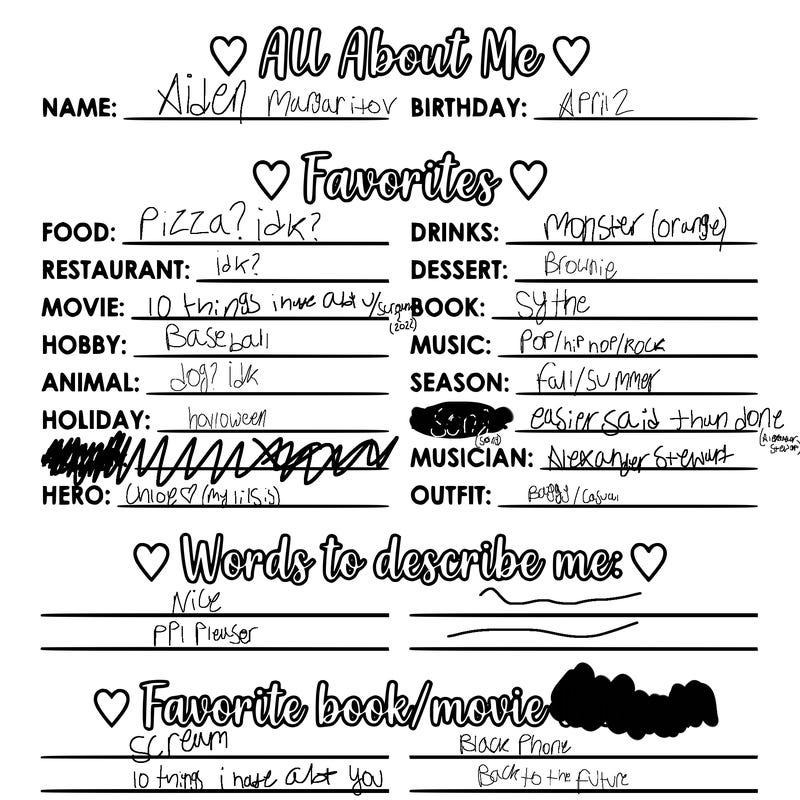 All About Me
NAME: Aiden Margaritov BIRTHDAY: April 2
Favorites
FOOD: Pizza? idk? DRINKS: Monster (orange)
RESTAURANT: idk? DESSERT: Brownie
MOVIE: 10 things i hate abt u/scream (2022) BOOK: Sythe
HOBBY: Baseball MUSIC: POP/hip hop/rock
ANIMAL: dog? idk SEASON: fall/summer
HOLIDAY: halloween song (song) easier said than done (Alexander Stewart)
MUSICIAN: Alexander Stewart
HERO: Chloe♡ (my lil sis) OUTFIT: Baggy/casual
Words to describe me:
Nice
PPl Pleaser
Favorite book/movie
Scream Black Phone
10 things i hate abt you Back to the future